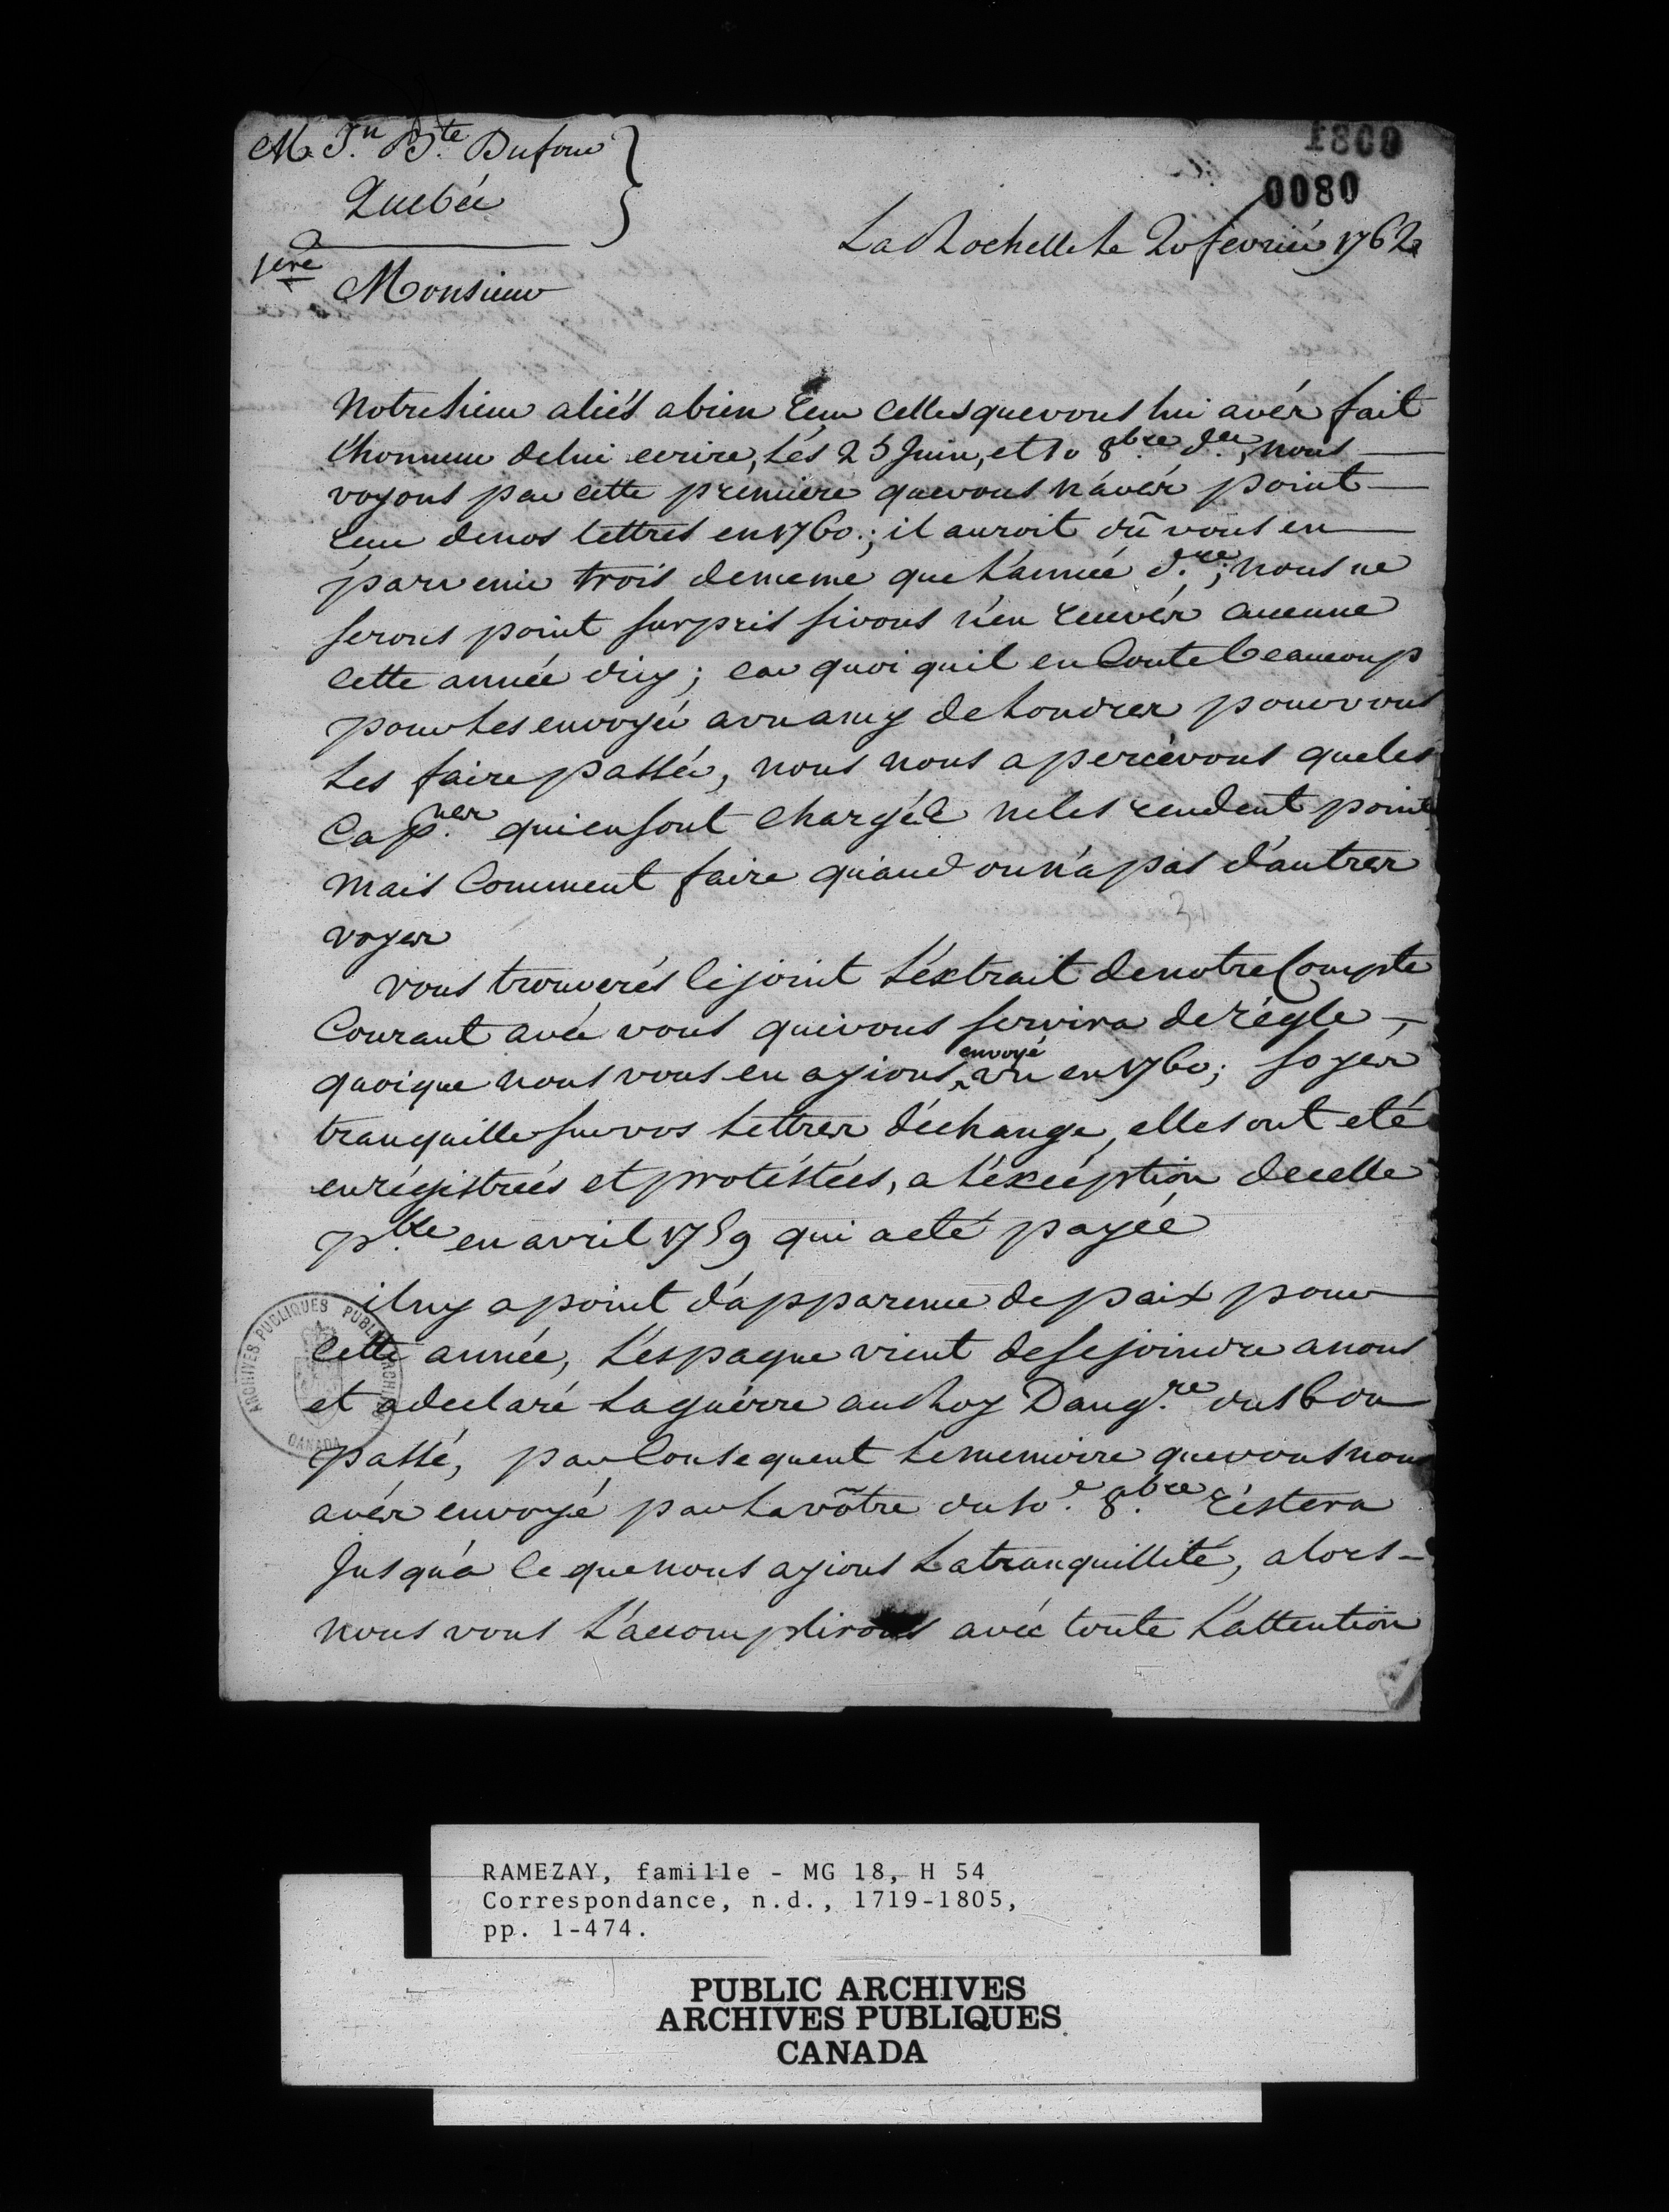 M. Jn. Bte. Dufour
Quebéc
1ere
1800
0080
La Rochelle le 20 fevrier 1762
Monsieur
Notre sieur aliés a bien reçu celles que vous lui avés fait
l'honneur de lui ecrire, Lés 25 Juin, et 10 8bre. der., nous
voyons par cette premiere que vous n'avés point
reçu de nos lettres en 1760.; il auroit dû vous en
parvenir trois de meme que L'année d.re; nous ne
serons point surpris si vous n'en recevés aucune
cette année cy; car quoi quil en Coute beaucoup
pour Les envoyér a un amy de Londres pour vous
Les faire passér, nous nous apercevons que les
Capnes. qui en sont chargéé ne les rendent point
mais Comment faire quand on n'a pas d'autres
voyes
vous trouverés Cijoint L'éxtrait de notre Compte
Courant avéc vous qui vous servira de régle,
quoique nous vous en ayions envoyé un en 1760; soyés
tranquille sur vos Lettres d'échange, elles ont eté
enrégistrées et protéstées, a L'éxéception de celle
p.ble en avril 1759 qui a eté payéé
il ny a point d'apparence de paix pour
Cette année, L'espagne vient de se joindre a nous
et a declaré La guérre au Roy Dang.re du 16 du
passé, par Consequent Le memoire que vous nous
avés envoyé par La vôtre du 10.e 8.bre réstera
Jusqu'a Ce que nous ayions La tranquillité, alors
nous vous L'accomplirons avéc toute L'attention
ARCHIVES PUBLIQUES PUBLIC ARCHIVES
CANADA
RAMEZAY, famille - MG 18, H 54
Correspondance, n.d., 1719-1805,
pp. 1-474.
PUBLIC ARCHIVES
ARCHIVES PUBLIQUES
CANADA